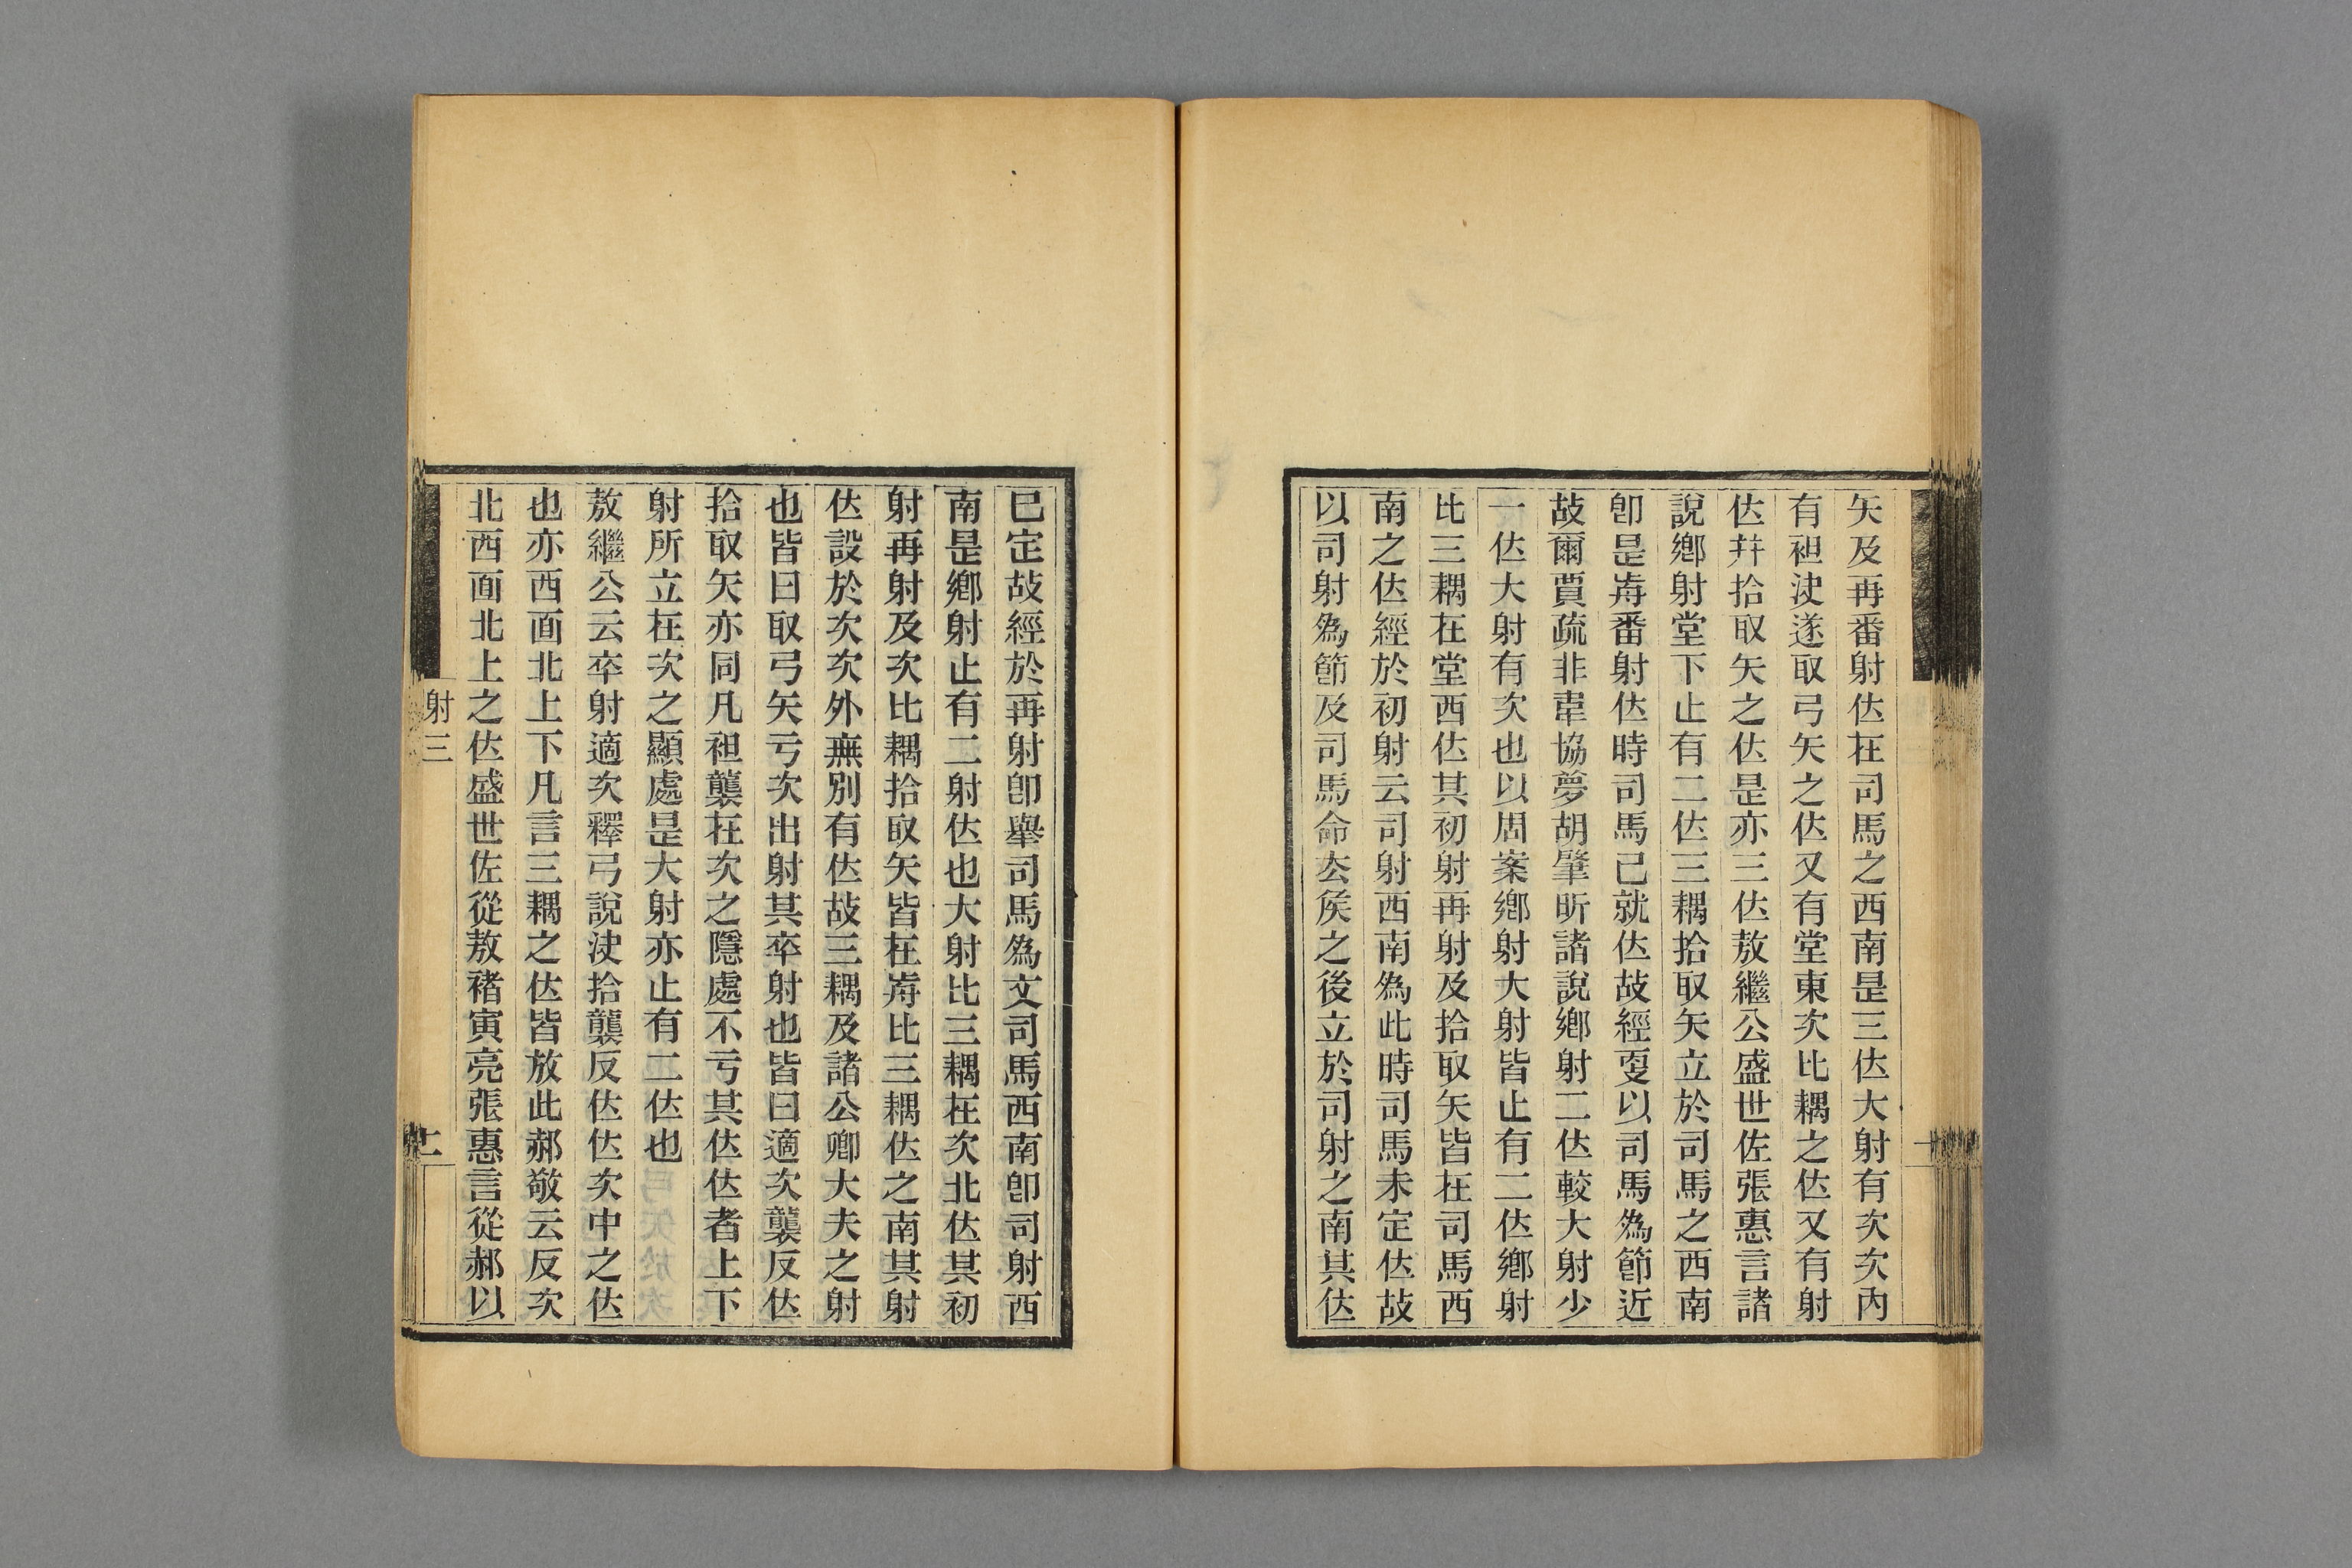 矢及再番射位在司馬之西南是三位大射有次次內
有袒決遂取弓矢之位又有堂東次比耦之位又有射
位幷拾取矢之位是亦三位敖繼公盛世佐張惠言諸
說鄉射堂下止有二位三耦拾取矢立於司馬之西南
卽是歬番射位時司馬已就位故經㪅以司馬爲節近
故爾賈疏非韋協夢胡肇昕諸說鄉射二位較大射少
一位大射有次也以周案鄉射大射皆止有二位鄉射
比三耦在堂西位其初射再射及拾取矢皆在司馬西
南之位經於初射云司射西南爲此時司馬未定位故
以司射爲節及司馬命去矦之後立於司射之南其位
已定故經於再射卽舉司馬爲文司馬西南卽司射西
南是鄉射止有二射位也大射比三耦在次北位其初
射再射及次比耦拾取矢皆在歬比三耦位之南其射
位設於次次外無別有位故三耦及諸公卿大夫之射
也皆曰取弓矢亏次出射其卒射也皆曰適次襲反位
拾取矢亦同凡袒襲在次之隱處不亏其位位者上下
射所立在次之顯處是大射亦止有二位也
敖繼公云卒射適次釋弓說決拾襲反位位次中之位
也亦西面北上下凡言三耦之位皆放此郝敬云反次
北西面北上之位盛世佐從敖褚寅亮張惠言從郝以
射三
二